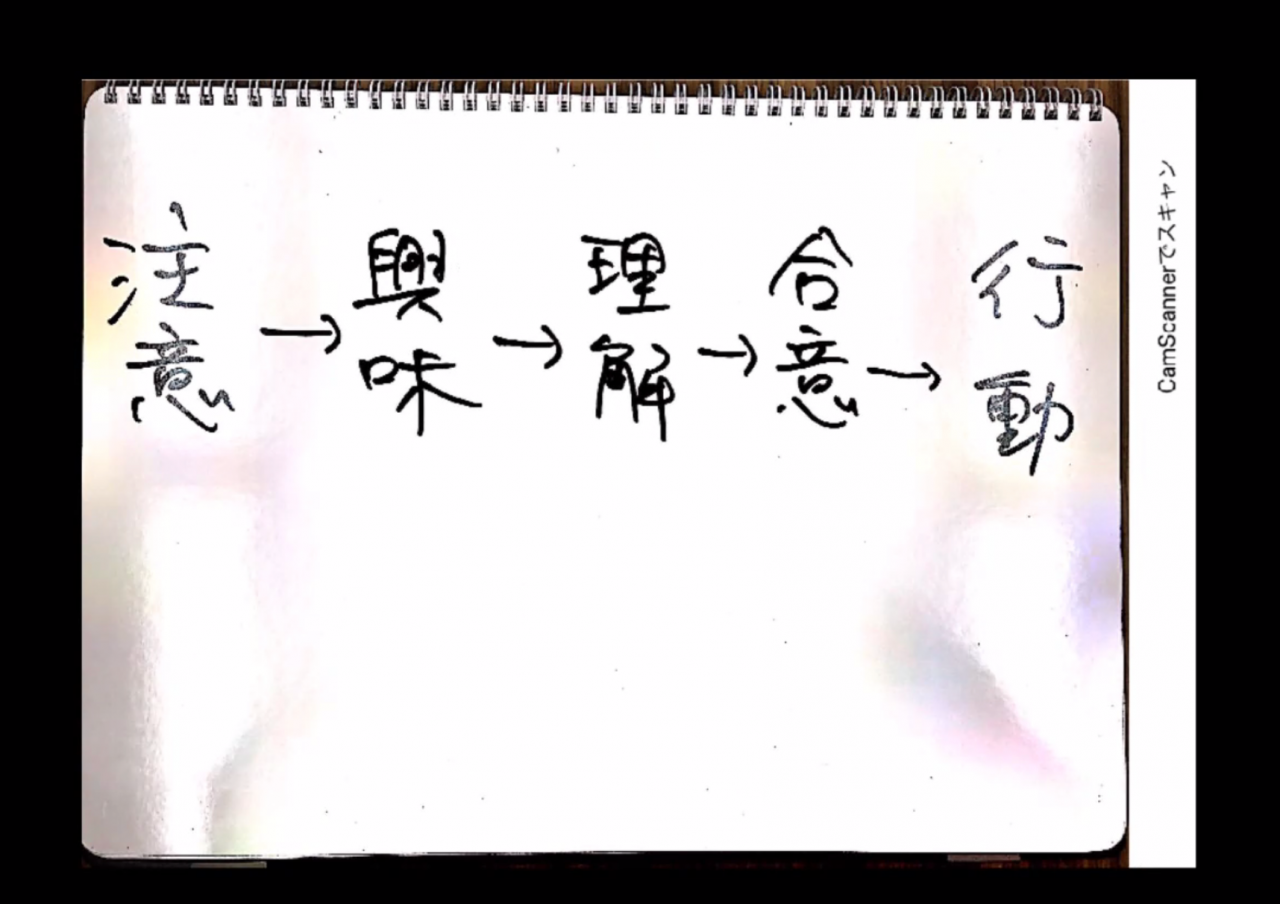 注意→興味→理解→合意→行動
CamScannerでスキャン